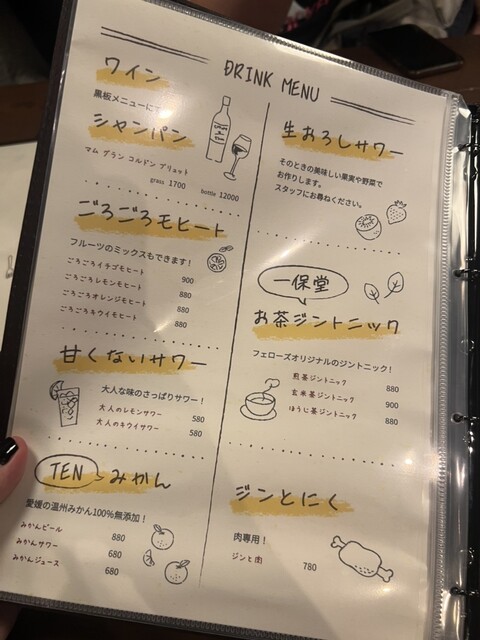 DRINK MENU
ワイン
黒板メニューにて
シャンパン
マム グラン コルドン ブリュット
grass 1700 bottle 12000
ごろごろモヒート
フルーツのミックスもできます！
ごろごろイチゴモヒート 900
ごろごろレモンモヒート 880
ごろごろオレンジモヒート 880
ごろごろキウイモヒート 880
甘くないサワー
大人な味のさっぱりサワー！
大人のレモンサワー 580
大人のキウイサワー 580
TEN みかん
愛媛の温州みかん100%無添加！
みかんビール 880
みかんサワー 680
みかんジュース 680
生おろしサワー
そのときの美味しい果実や野菜で
お作りします。
スタッフにお尋ねください。
一保堂
お茶ジントニック
フェローズオリジナルのジントニック！
煎茶ジントニック 880
玄米茶ジントニック 900
ほうじ茶ジントニック 880
ジンとにく
肉専用！
ジンと肉 780